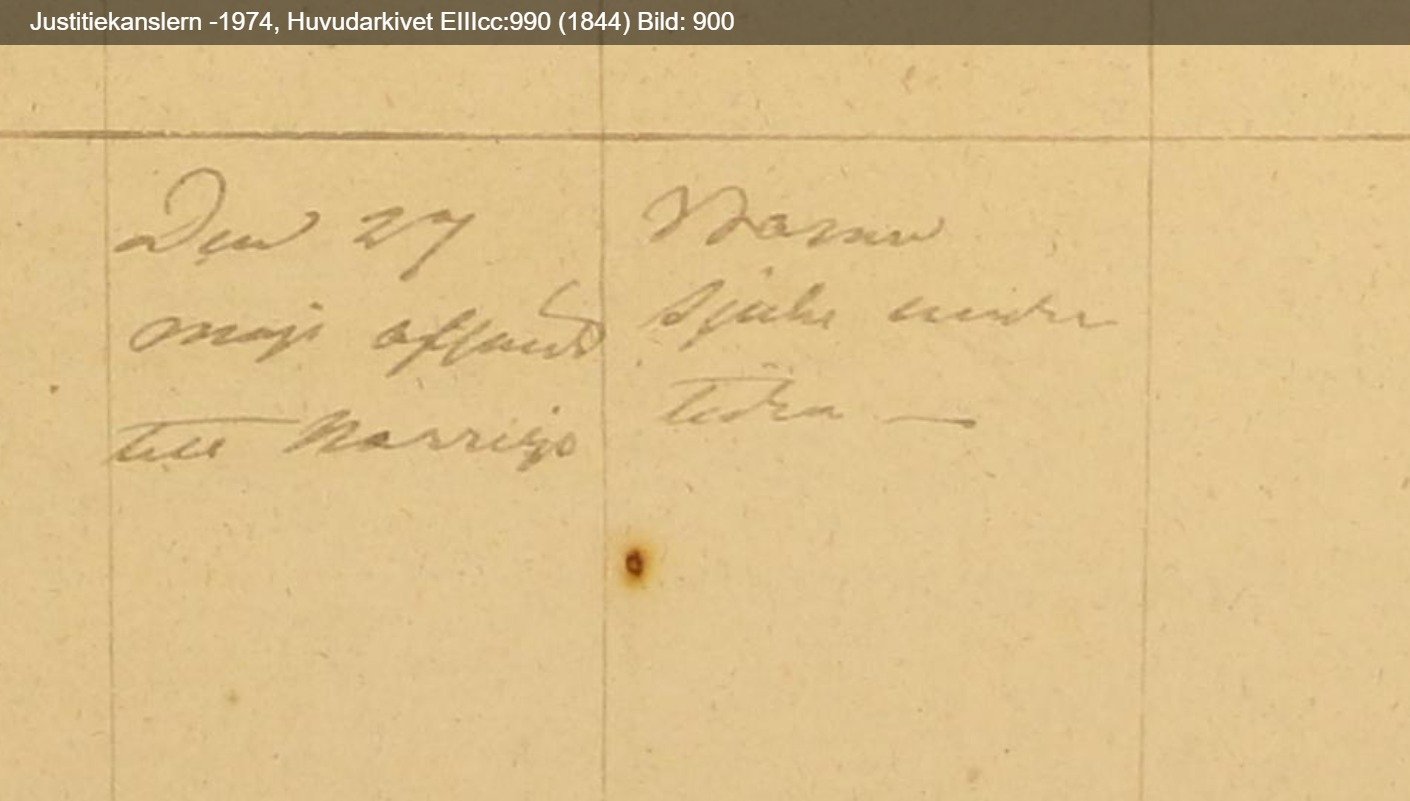 Justitiekanslern -1974, Huvudarkivet EIIIcc:990 (1844) Bild: 900
Den 27
maji afsänd
till Norrige
sjuke under
tiden —